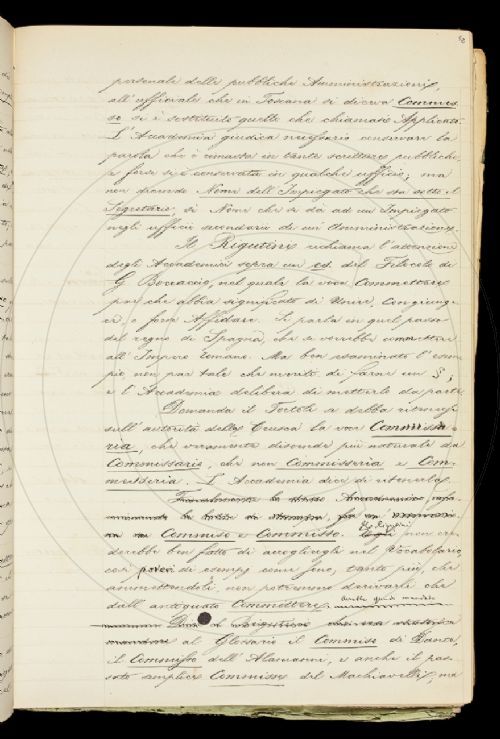 52
personale delle pubbliche Amministrazioni,
all'officiale che in Toscana si diceva Commes-
so si è sostituito quello che chiamasi Applicato.
L'Accademia giudica necessario conservare la
parola che è rimasta in tante scritture pubbliche
e forse si è conservata in qualche ufficio; ma
non dicendo Nome dell'Impiegato che sta sotto il
Segretario, sì Nome che si dà ad un Impiegato
negli ufficii secondario di un'Amministrazione.
Il Rigutini richiama l'attenzione
degli Accademici sopra un es. del Filocolo di
G. Boccaccio, nel quale la voce Commettere
par che abbia significato di Unire, Congiunge-
re, o forse Affidare. Si parla in quel passo
del regno di Spagna, che si vorrebbe commettere
all'Impero romano. Ma ben esaminato l'esem-
pio, non par tale che meriti di farne un §;
e l'Accademia delibera di metterlo da parte.
Domanda il Tortoli se debba ritenersi
sull'autorità della Crusca la voce Commissa-
ria, che veramente discende più naturale da
Commessario, che non Commisseria e Com-
messeria. L'Accademia dice di ritenerla.
Commiso e Commisto. Egli non cre-
derebbe ben fatto di accogliergli nel Vocabolario
così poveri di esempj come sono, tanto più, che
ammettendoli, non potremmo derivarli che
dall'antiquato Commettere;
al Glossario il Commise di Dante,
il Commisso dell'Alamanni, e anche il pas-
sato semplice Commisse del Machiavelli, ma